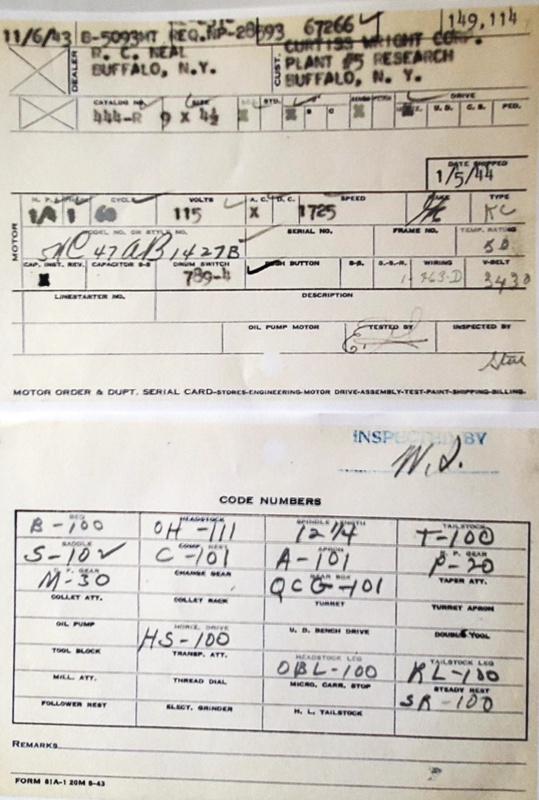 11/6/43 B-5093MT REQ.NP-28593 67266 149,114
DEALER R. C. NEAL
BUFFALO, N.Y.
CUST. CURTISS WRIGHT CORP.
PLANT #5 RESEARCH
BUFFALO, N. Y.
CATALOG NO. SIZE STD. B C DRIVE U.D. C.B. PED.
444-R 9 X 4½ X X
DATE SHIPPED
1/5/44
MOTOR
H. P. PHASE CYCLE VOLTS A.C. D.C. SPEED MAKE TYPE
1/4 1 60 115 X 1725 KC
MODEL NO. OR STYLE NO. SERIAL NO. FRAME NO. TEMP. RATING
47AB1427B
CAP. INST. REV. CAPACITOR S-S DRUM SWITCH PUSH BUTTON S-S. S.-S.-R. WIRING V-BELT
X 789-4 1-363-D 3430
LINESTARTER NO. DESCRIPTION
OIL PUMP MOTOR TESTED BY INSPECTED BY
MOTOR ORDER & DUPT. SERIAL CARD-STORES-ENGINEERING-MOTOR DRIVE-ASSEMBLY-TEST-PAINT-SHIPPING-BILLING.
INSPECTED BY
W.S.
CODE NUMBERS
BED HEADSTOCK SPINDLE LENGTH TAILSTOCK
B-100 OH-111 12¼ T-100
SADDLE COMP. REST APRON R. P. GEAR
S-102 C-101 A-101 P-20
GEAR GEAR BOX
M-30 CHANGE GEAR QCG-101 TAPER ATT.
COLLET ATT. COLLET RACK TURRET TURRET APRON
OIL PUMP HORIZ. DRIVE U. D. BENCH DRIVE DOUBLE TOOL
HS-100
TOOL BLOCK TRANSP. ATT. HEADSTOCK LEG TAILSTOCK LEG
OBL-100 RL-100
MILL. ATT. THREAD DIAL MICRO. CARR. STOP STEADY REST
SR-100
FOLLOWER REST ELECT. GRINDER H. L. TAILSTOCK
REMARKS
FORM 81A-1 20M 8-43